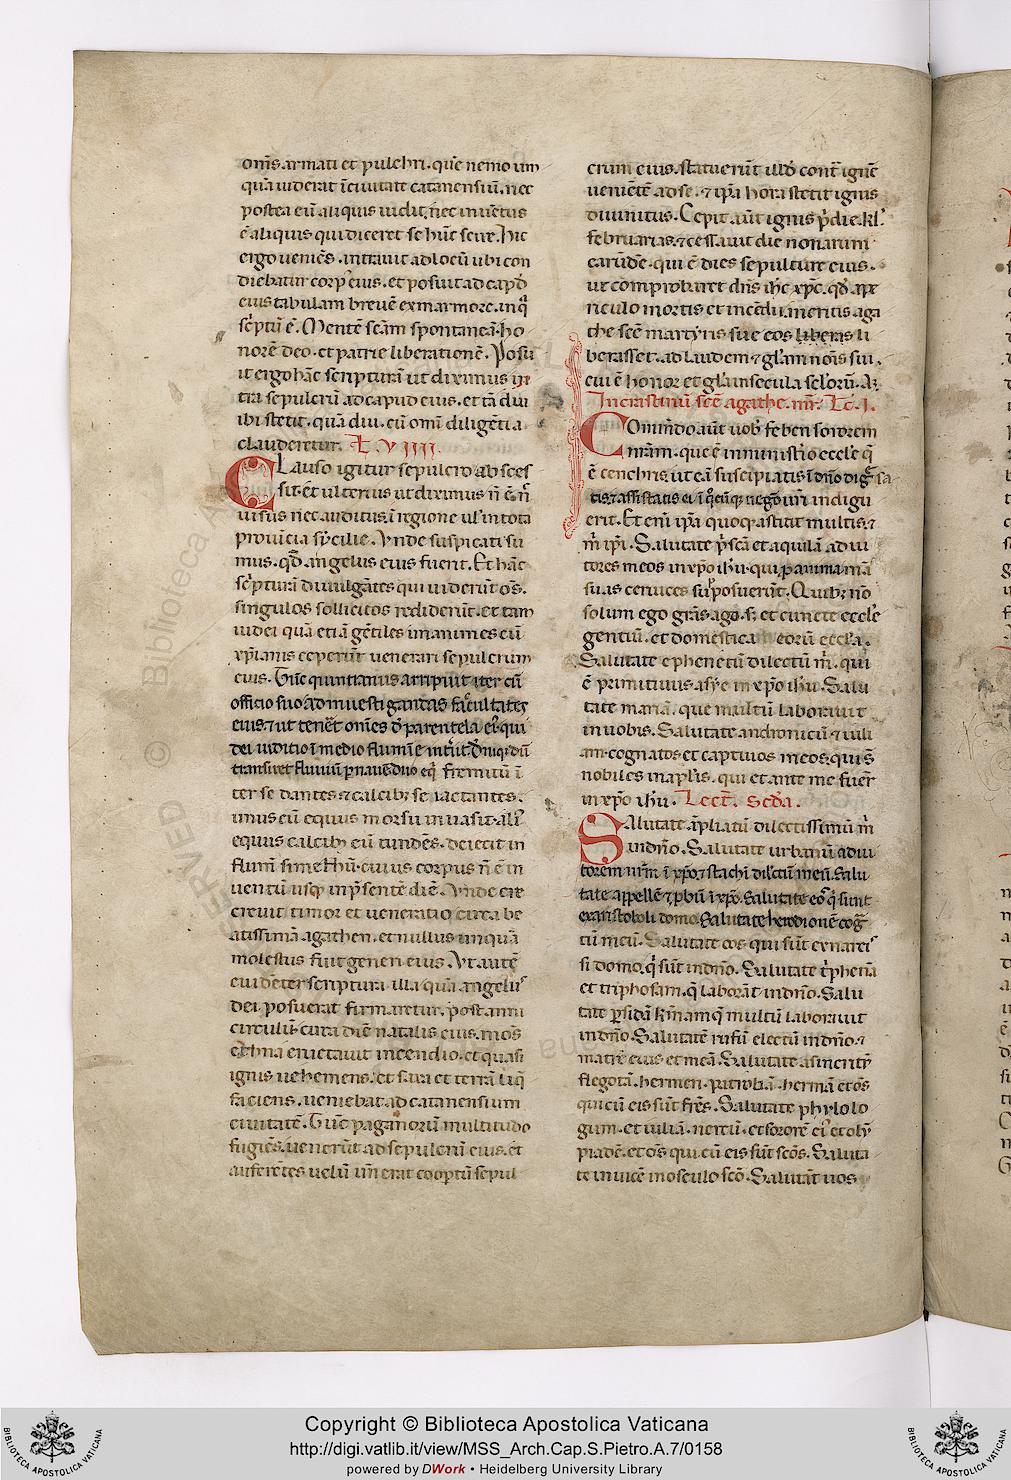 om̅s armati et pulchri. que̅ nemo um
qua̅ uiderat i̅ ciuitate catanensiu̅. nec
postea eu̅ aliquis uidit, nec inue̅tus
e̅ aliquis qui diceret se hu̅c scire. hic
ergo uenie̅s. intrauit ad locu̅ ubi con
diebatur corp⁹ eius. et posuit ad capd̅
eius tabulam breue̅ ex marmore. in q̅
sc̅ptu̅ e̅. Mente̅ sc̅am spontanea̅. ho
nore̅ deo. et patrie liberatione̅. Posu
it ergo ha̅c scriptura̅ ut diximus in
tra sepulcru̅ ad capud eius. et ta̅ diu
ibi stetit. qua̅ diu. cu̅ omi̅ dilige̅tia
clauderetur. L. VIIII.
Clauso igitur sepulcro absces
sit. et ulterius ut diximus n̅ e̅ n̅
uisus nec auditus. i̅ regione ul̅ in tota
prouincia sycilie. Vnde suspicati su
mus. qd̅ angelus eius fuerit. Et ha̅c
sc̅ptura̅ diuulga̅tes qui uideru̅t o̅s.
singulos sollicitos reddideru̅t. et tam
iudei qua̅ etia̅ ge̅tiles unanimes cu̅
xp̅ianis ceperu̅t uenerari sepulcrum
eius. Tu̅c quintianus arripiuit iter cu̅
officio suo ad inuestigandas facultates
eius. et ut tener̅et om̅es d̅ parentela ei⁹. qui
dei iuditio i̅ medio flumi̅e int̅iit. Deniq; du̅
transiret fluuiu̅ p̅ naue̅. duo eq̅ fremitu̅ i̅
ter se dantes. et calcib; se iactantes.
unus eu̅ equus morsu inuasit. ali⁹
equus calcib; eu̅ tunde̅s. deiecit in
flum̅ simethu̅. cuius corpus n̅ e̅ in
uentu̅ usq; in p̅sente̅ die̅. Vnde cre
creuit timor et ueneratio circa be
atissima̅ agathen. et nullus unqua̅
molestus fuit generi eius. Vt aute̅
euide̅ter scriptura illa qua̅ angelus
dei posuerat firmaretur. post anni
circulu̅. circa die̅ natalis eius. mo̅s
ethna eructauit incendio. et quasi
ignis uehemens. et saxa et terra̅ liq̅
faciens. ueniebat ad catanensium
ciuitate̅. Tu̅c paganoru̅ multitudo
fugie̅s. ueneru̅t ad sepulcru̅ eius. et
aufere̅tes uelu̅ un̅ erat coop̅tu̅ sepul
crum eius. statueru̅t illd̅ cont̅ igne̅
uenie̅te̅ ad se. et ip̅a hora stetit ignis
diuinitus. Cepit aut̅ ignis p̅die. kl̅.
februarias. et cessauit die nonarum
earu̅de̅. que e̅ dies sepulture eius.
ut comprobaret dn̅s ih̅c xp̅c. qd̅ a pe
riculo mortis et ince̅dii. meritis aga
the sc̅e martyris sue eos liberas li
berasset. ad laudem et gl̅am nom̅s sui.
cui e̅ honor et gl̅a in secula sclo̅ru̅. A̅.
In crastinu̅ sc̅e agathe. mr̅. Lc̅. I.
Comm̅do aut̅ uob̅ feben sororem
nr̅am. que e̅ in ministrio eccl̅e q̅
e̅ cenchris. ut ea̅ suscipiatis i̅ dn̅o dig̅ sa
tis. et assistatis ei i̅ q̅cu̅q; nego̅ ur̅i indigu
erit. Et eni̅ ip̅a quoq; astitit multis. et
m̅ ip̅i. Salutate p̅sca̅ et aquila̅ adiu
tores meos in xp̅o ih̅u. qui. p̅ anima ma̅
suas ceruices supposuerut̅. Quib; no̅
solum ego gr̅as ago. s; et cuncte eccl̅e
gentiu̅. et domestica eoru̅ eccl̅a.
Salutate ephenetu̅ dilectu̅ m̅. qui
e̅ primitiuus asye in xp̅o ih̅u. Salu
tate maria̅. que multu̅ laborauit
in uobis. Salutate andronicu̅ et iuli
am. cognatos et captiuos meos. qui s̅
nobiles in ap̅lis. qui et ante me fuer̅
in xp̅o ih̅u. Lect̅. Scd̅a.
Salutate a̅pliatu̅ dilectissimu̅ m̅
in dn̅o. Salutate urbanu̅ adiu
torem nr̅m i̅ xp̅o. et stachi̅ dilc̅tu̅ meu̅. Salu
tate appelle̅ et p̅bu̅ i̅ xp̅o. Salutate eo̅ q̅ sunt
ex aristoboli domo. Salutate herodione̅ cog̅
tu̅ meu̅. Salutate eos qui su̅t ex narcis
si domo. q̅ su̅t in dn̅o. Salutate t̅phena̅
et triphosam. q̅ labora̅t in dn̅o. Salu
tate p̅sida̅ k̅mam q̅ multu̅ laborauit
in dn̅o. Salutate̅ rufu̅ electu̅ in dn̅o. et
matre̅ eius et mea̅. Salutate asincrit̅
flegota̅. hermen. patroba̅. herma̅ et o̅s
qui cu̅ eis su̅t fr̅es. Salutate phylolo
gum. et iulia̅. nereu̅. et sorore̅ ei⁹ et oly̅
piade̅. et o̅s qui cu̅ eis su̅t sc̅os. Saluta
te inuice̅ in osculo sc̅o. Saluta̅t uos
Copyright © Biblioteca Apostolica Vaticana
http://digi.vatlib.it/view/MSS_Arch.Cap.S.Pietro.A.7/0158
powered by DWork • Heidelberg University Library